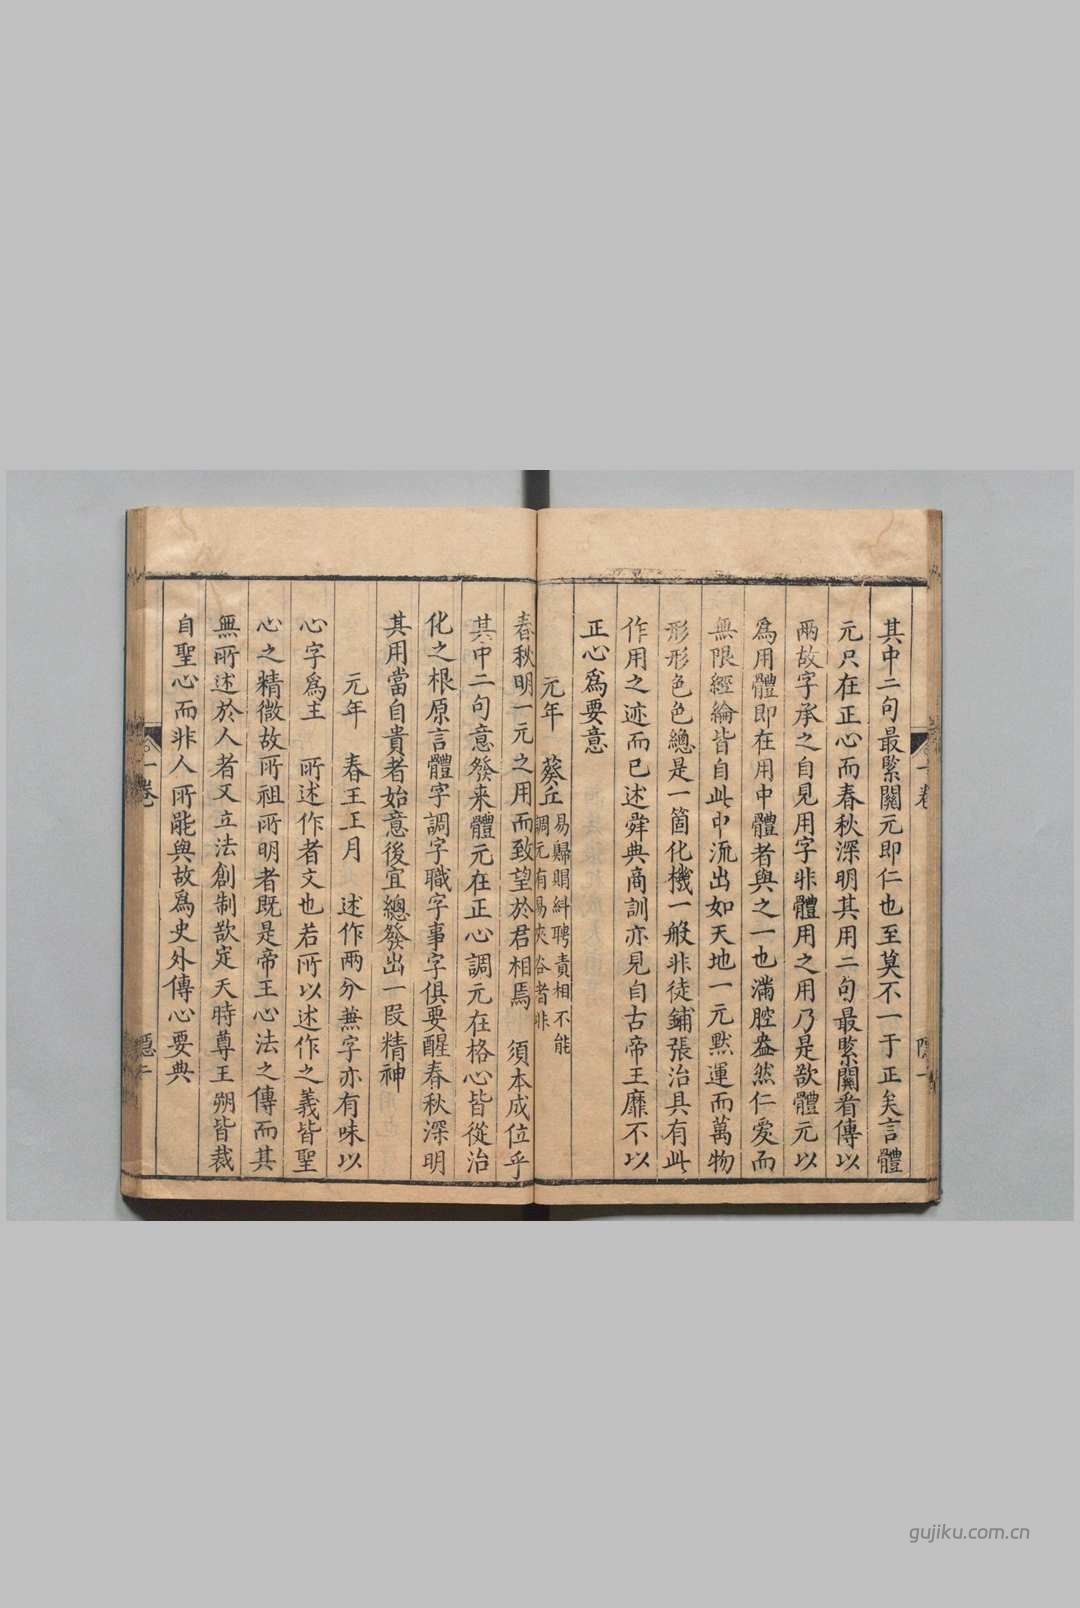 其中二句最緊關元即仁也至莫不一于正矣言體
元只在正心而春秋深明其用二句最緊關看傳以
兩故字承之自見用字非體用之用乃是欲體元以
為用體即在用中體者與之一也滿腔盎然仁愛而
無限經綸皆自此中流出如天地一元默運而萬物
形形色色總是一箇化機一般非徒鋪張治具有此
作用之迹而已述舜典商訓亦見自古帝王靡不以
正心為要意
元年 葵丘 易歸賵糾聘責相不能
調元有易夾谷者非
一卷 隱一
春秋明一元之用而致望於君相焉 須本成位乎
其中二句意發来體元在正心調元在格心皆從治
化之根原言體字調字職字事字俱要醒春秋深明
其用當自貴者始意後宜總發出一段精神
元年 春王正月 述作兩分兼字亦有味以
心字為主 所述作者文也若所以述作之義皆聖
心之精微故所祖所明者既是帝王心法之傳而其
無所述於人者又立法創制欲定天時尊王朔皆裁
自聖心而非人所能與故為史外傳心要典
一卷 隱二
gujiku.com.cn